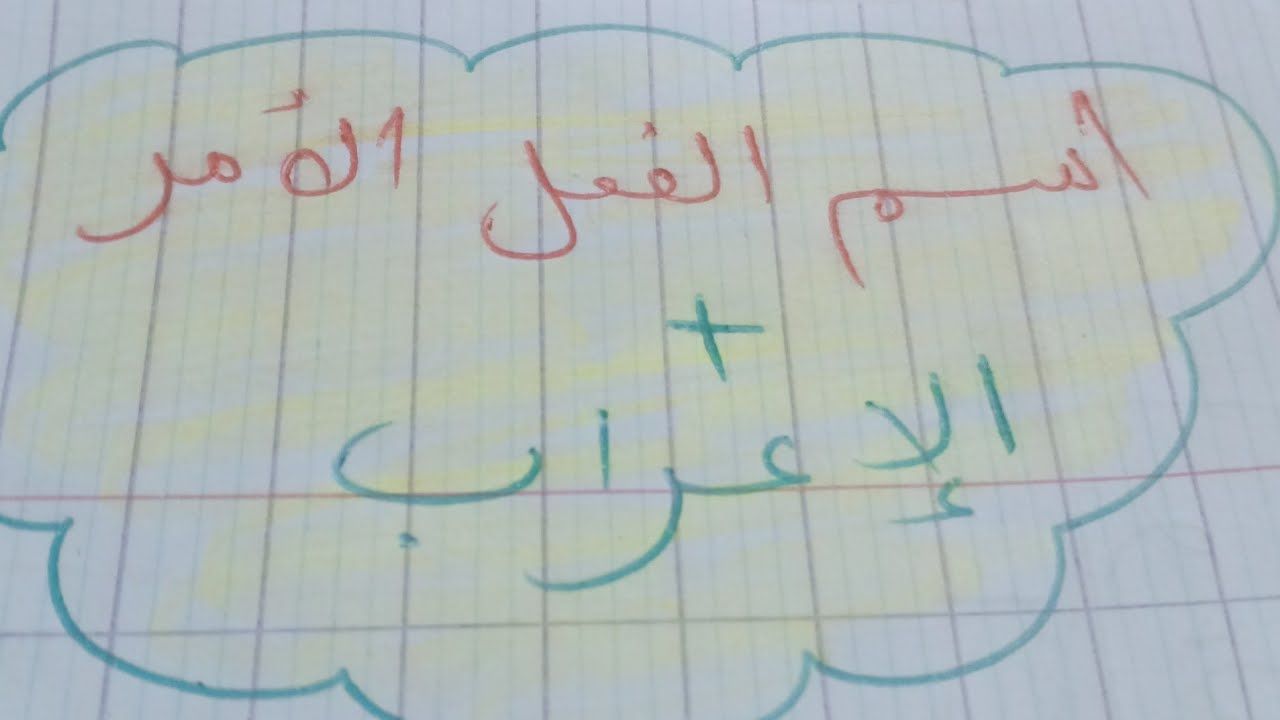 اسم الفعل الأمر
+
الإعراب